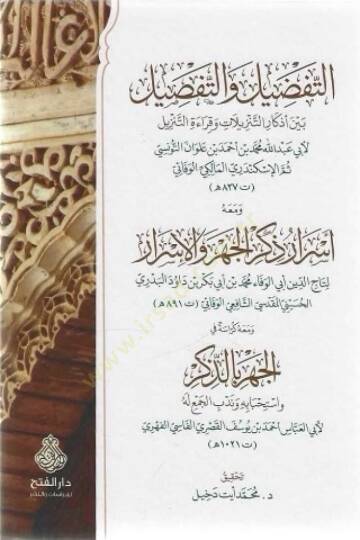 التفضيل والتفصيل
بين أذكار التنزيلات وقراءة التنزيل
لأبي عبد الله محمد بن أحمد بن علوان التونسي
ثم الإسكندري المالكي الوفائي
(ت ٨٢٧ هـ)
ومعه
أسرار ذكر الجهر والإسرار
لتاج الدين أبي الوفاء محمد بن أبي بكر بن داود البدري
الحسيني المقدسي الشافعي الوفائي (ت ٨٩١ هـ)
ومعه كراسة في
الجهر بالذكر
واستحبابه وندب الجمع له
لأبي العباس أحمد بن يوسف القصري الفاسي الفهري
(ت ١٠٢١ هـ)
تحقيق
د. محمد أيت دخيل
دار الفتح
للدراسات والنشر